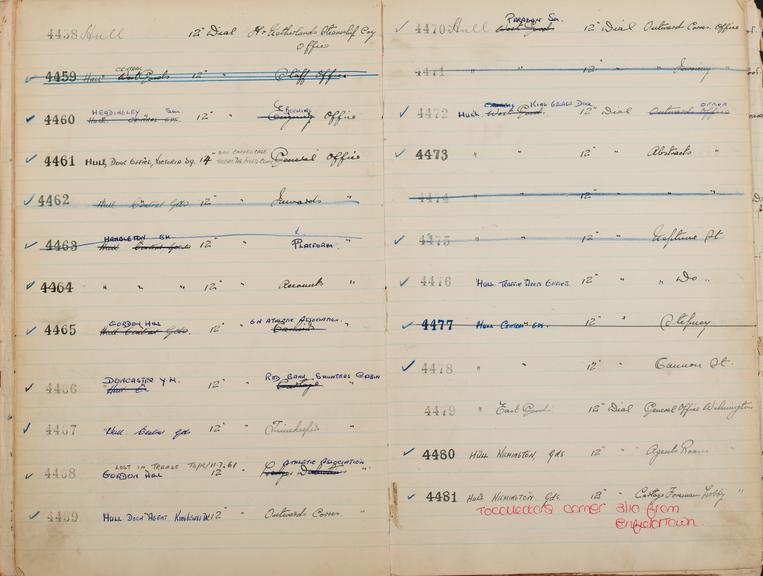 4458 Hull 12" Dial Steamship Coy
Office
CENTRAL
4459 Hull West Goods 12" " Staff Office
HEADINGLEY STN. BOOKING
4460 Hull Central Gds. 12" " Enquiry Office
4461 HULL, DOCK OFFICE, VICTORIA SQ. 14" General Office
4462 Hull Central Gds 12" " Inwards "
HAMBLETON
4463 Hull Central Gds 12" " PLATFORM. "
4464 " " " 12" " Accounts "
GORDON HILL GN ATHLETIC ASSOCIATION.
4465 Hull Central Gds. 12" " Cashier "
DONCASTER RED BANK SHUNTERS CABIN
4466 Hull 12" " Cartage
4467 Hull Central Gds 12" " Timekeeper
LOST IN TRANSIT 11.7.61 ATHLETIC ASSOCIATION
4468 GORDON HILL 12" " "
4469 HULL DOCK AGENT, 12" " Outwards Corres. "
PARAGON Stn.
4470 Hull West Goods 12" Dial Outward Corres. Office
4471 " " 12" " "
KING GEORGE DOCK
4472 HULL West Goods. 12" Dial Outward Office
4473 " " 12" " Abstracts "
4474 " " 12" " " "
4475 " " 12" " Neptune St
4476 HULL TRAFFIC OFFICE. 12" " " Do "
4477 HULL Gds. 12" " Stepney
4478 " " 12" " Cannon St.
4479 " East Goods. 12" Dial General Office Wilmington
4480 HULL WILMINGTON, Gds 12" " Agents Room "
4481 HULL WILMINGTON. Gds. 12" " Cartage Foreman Lobby "
To collectors corner 3/10 from
Enfield Town.